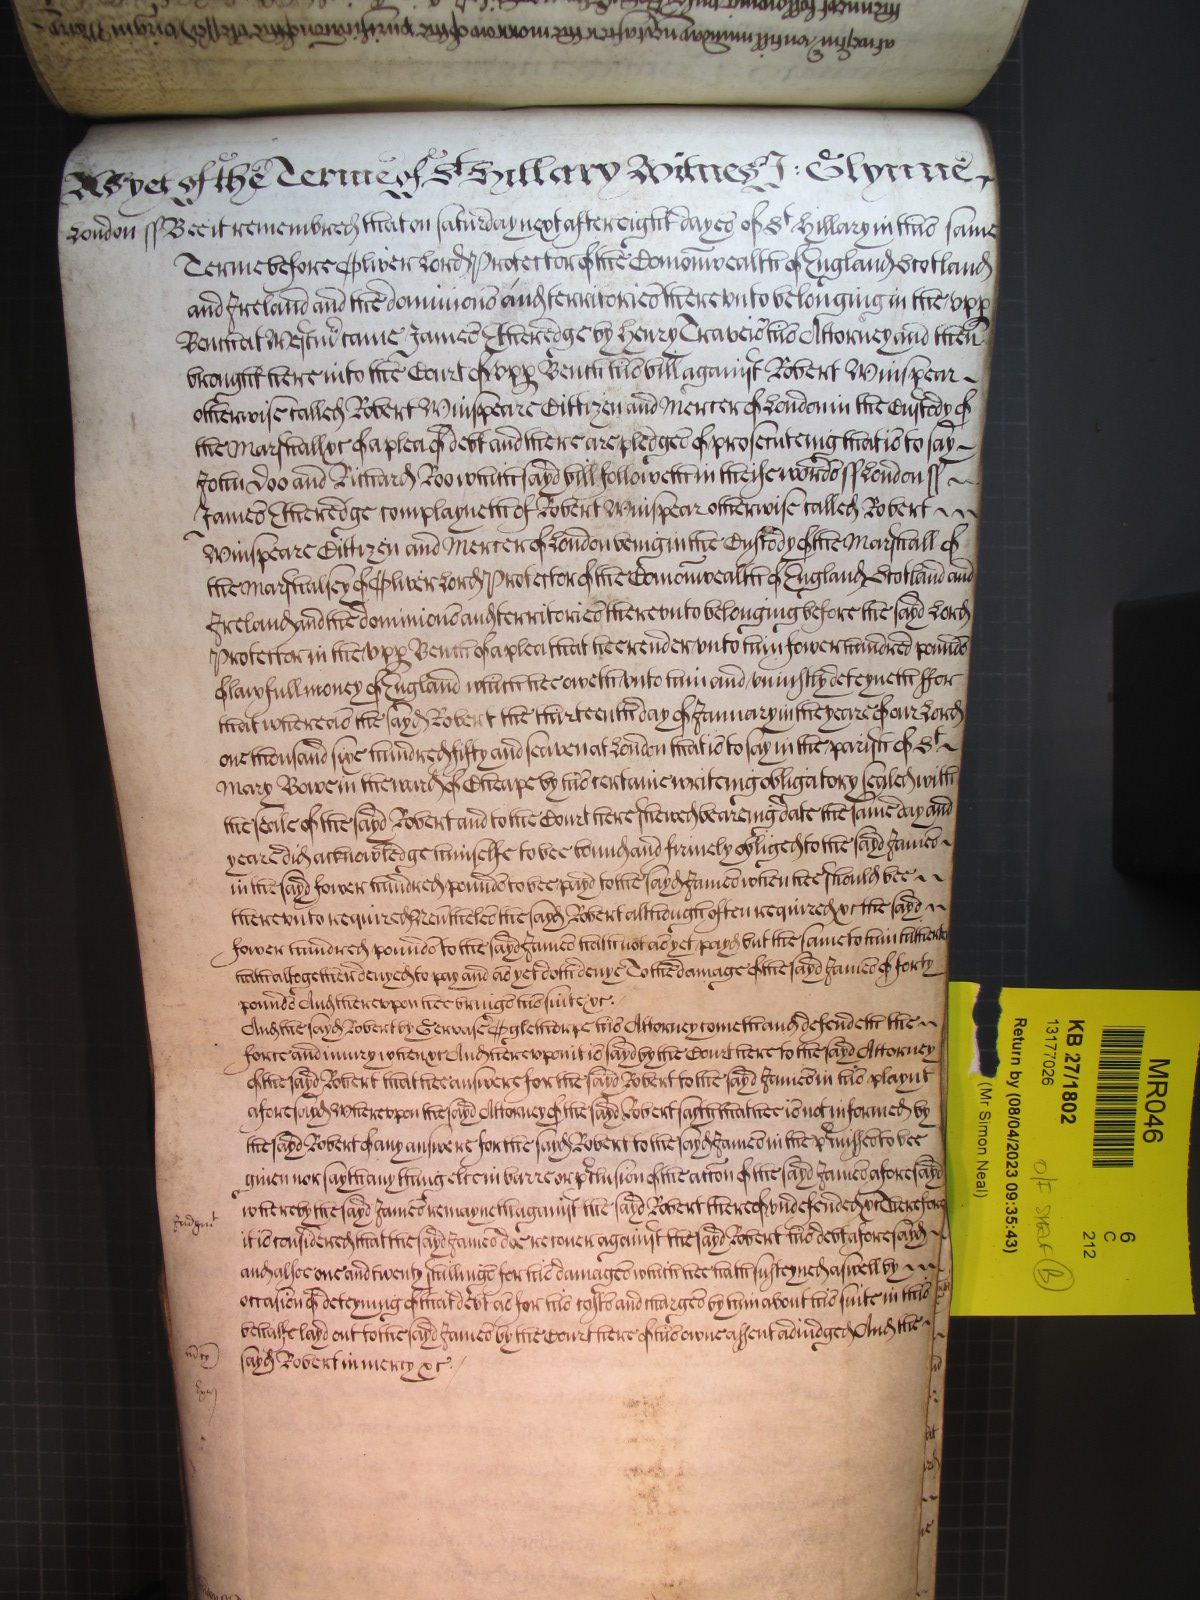 As yet of the Terme of St Hillary Witnes J: Glynne
London ss Bee it remembred that on saturday next after eight dayes of St Hillary in this same
Terme before Oliver Lord Protector of the Comonwealth of England Scotland
and Ireland and the dominions and territories therevnto belonging in the vpp
Bench at Westmr came James Etheredge by Henry Travers his Attorney and then
brought here into the Court of vpp Bench his bill against Robert Winspear
otherwise called Robert Winspeare Cittizen and Mercer of London in the Custody of
the Marshall &c of a plea of debt and there are pledges of prosecuteing that is to say
John Doo and Richard Roo which sayd bill followeth in theise words ss London ss
James Etheredge complayneth of Robert Winspear otherwise called Robert
Winspeare Cittizen and Mercer of London being in the Custody of the Marshall of
the Marshalsey of Oliver Lord Protector of the Comonwealth of England Scotland and
Ireland and the dominions and territories therevnto belonging before the sayd Lord
Protector in the vpp Bench of a plea that hee render vnto him fower hundred pounds
of lawfull money of England which hee oweth vnto him and vniustly deteyneth ffor
that whereas the sayd Robert the thirteenth day of January in the yeare of our Lord
one thousand six hundred fifty and seaven at London that is to say in the parish of St
Mary Bowe in the ward of Cheape by his certaine writeing obligatory sealed with
the seale of the sayd Robert and to the Court here shewed beareing date the same day and
yeare did acknowledge himselfe to bee bound and firmely obliged to the sayd James
in the sayd fower hundred pounds to bee payd to the sayd James when hee should bee
therevnto required Neverthelesse the sayd Robert although often required &c the sayd
fower hundred pounds to the sayd James hath not as yet payd but the same to him hitherto
hath altogether denyed to pay and as yet doth denye To the damage of the sayd James of forty
pounds And therevpon hee brings his suite &c.
And the sayd Robert by Gervase Oglethorpe his Attorney cometh and defendeth the
force and iniury when &c And therevpon it is sayd by the Court here to the sayd Attorney
of the sayd Robert that hee answere for the sayd Robert to the sayd James in his playnt
aforesayd Wherevpon the sayd Attorney of the sayd Robert sayth that hee is not informed by
the sayd Robert of any answere for the sayd Robert to the sayd James in the p'misses to bee
given nor sayth any thing else in barre or p'clusion of the action of the sayd James aforesayd
whereby the sayd James remayneth against the sayd Robert thereof vndefended &c Therefore
Judgmt
it is considered that the sayd James doe recover against the sayd Robert his debt aforesayd
and alsoe one and twenty shillings for his damages which hee hath susteyned aswell by
occasion of deteyning of that debt as for his costs and charges by him about his suite in this
behalfe layd out to the sayd James by the Court here of his owne assent adiudged And the
sayd Robert in mercy &c.
MR046
6
C
212
KB 27/1802
13177026
O/F SHELF (B)
Return by (08/04/2023 09:35:43)
(Mr Simon Neal)